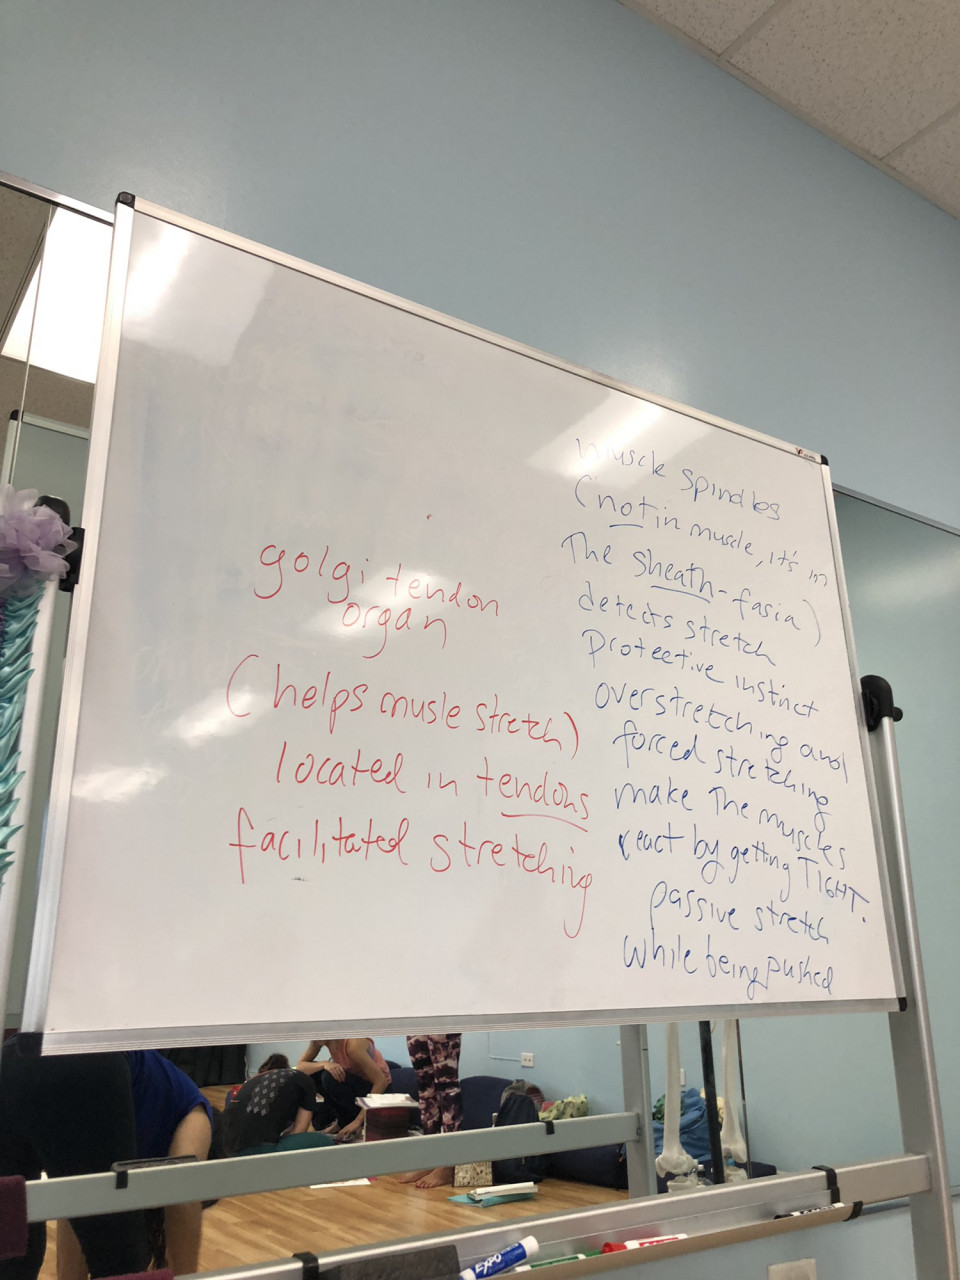 golgi tendon
organ
(helps musle stretch)
located in tendons
facilitated stretching
muscle spindles
(not in muscle, it's in
The sheath-fasia)
detects stretch
Protective instinct
overstretching and
forced stretching
make The muscles
react by getting TIGHT.
passive stretch
while being pushed
EXPO